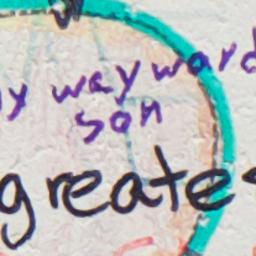 y wayward
son
greate